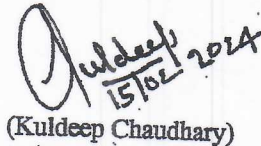 Kuldeep
15/02 2024
(Kuldeep Chaudhary)